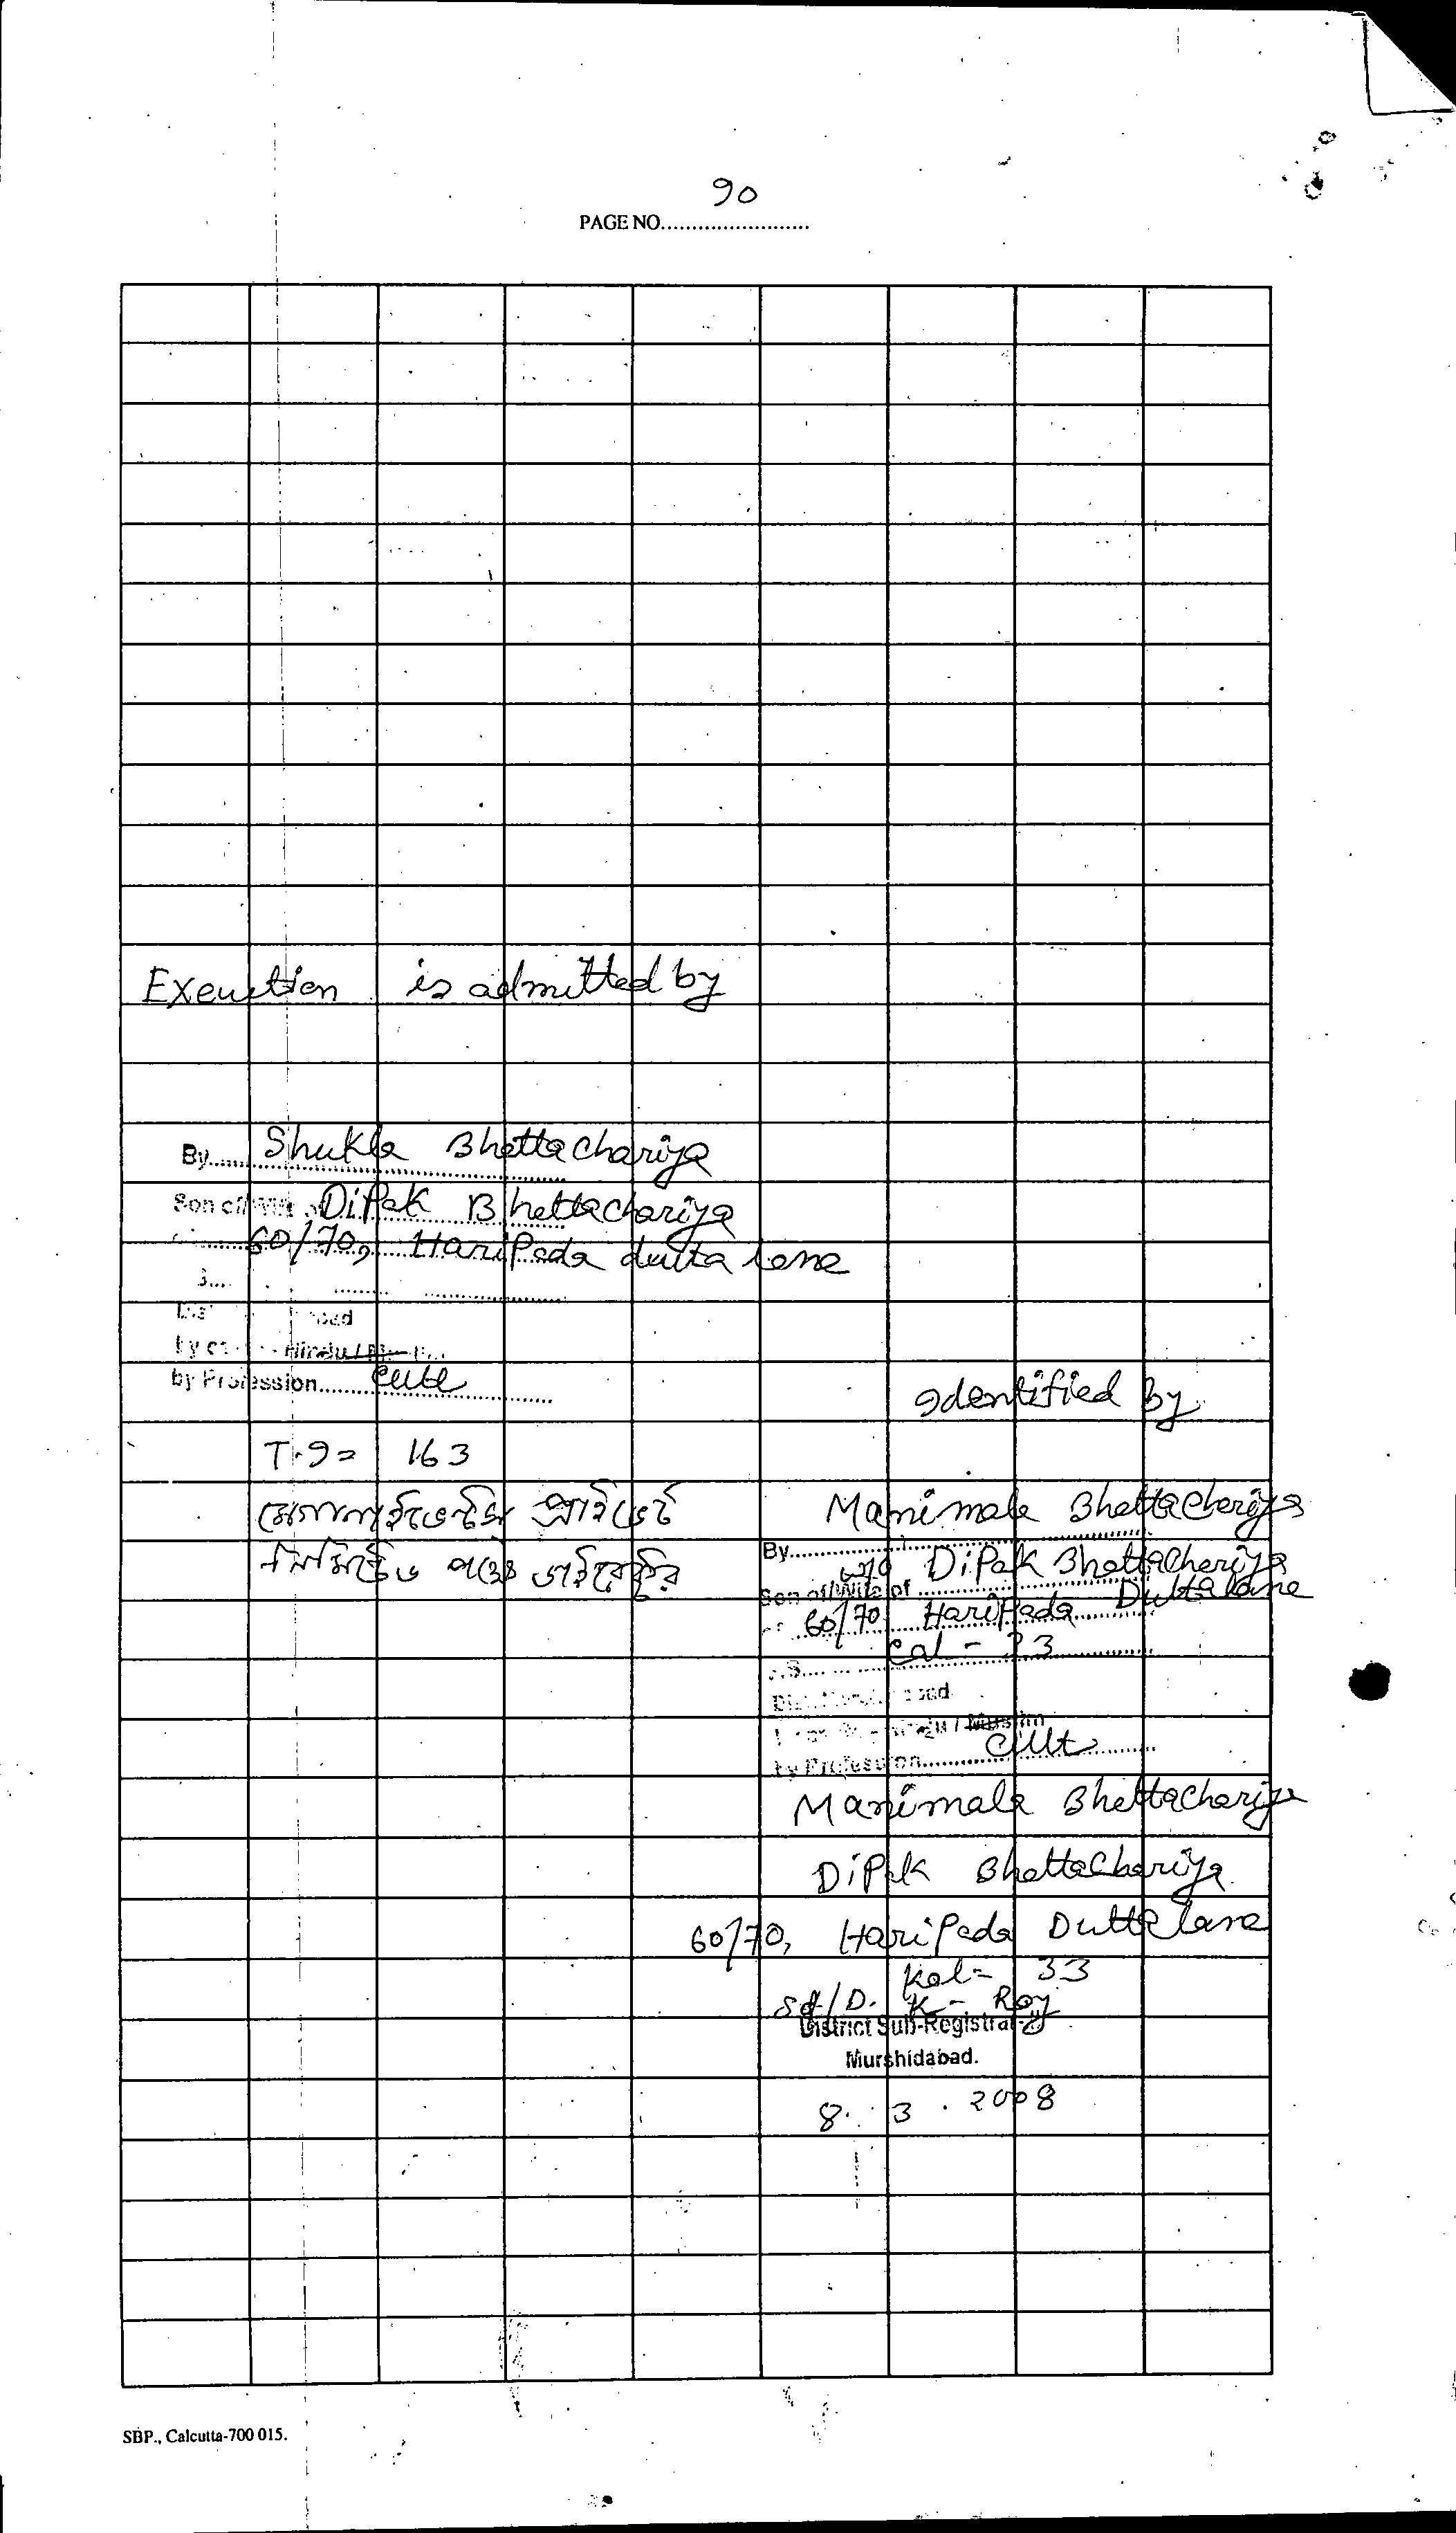 90
PAGE NO.........................
Execution is admitted by
By Shukla Bhattachariya
Son of/Wife Dipak Bhattachariya
60/70, Haripada dutta lane
by Profession Cult
Identified by
T.9= 163
প্রাইভেট
Manimala Bhattachariya
লিমিটেড পক্ষে ডাইরেক্টর
By W/o Dipak Bhattachariya
Son of/Wife of
60/70 Haripada Dutta lane
Cal - 33
Hindu / Muslim
by Profession Cult
Manimala Bhattachariya
Dipak Bhattachariya
60/70, Haripada Dutta lane
Kol= 33
Sd/D. K. Roy
District Sub-Registrar
Murshidabad.
8. 3. 2008
SBP., Calcutta-700 015.